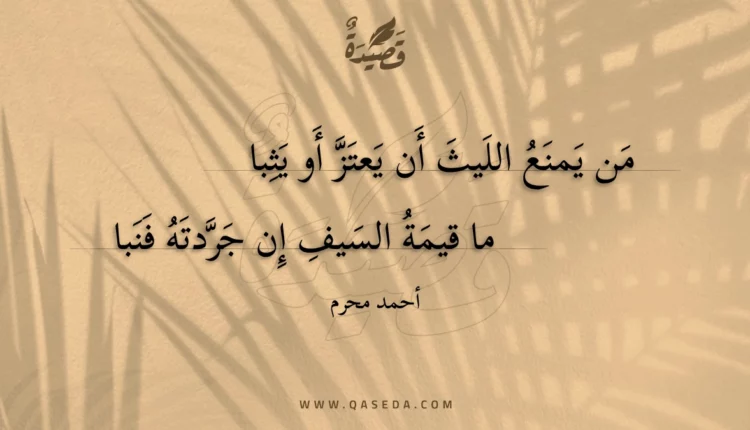 قَصِيدَةٌ
مَن يَمنَعُ اللَيثَ أَن يَعتَزَّ أَو يَثِبا
ما قيمَةُ السَيفِ إِن جَرَّدتَهُ فَنَبا
أحمد محرم
WWW.QASEDA.COM